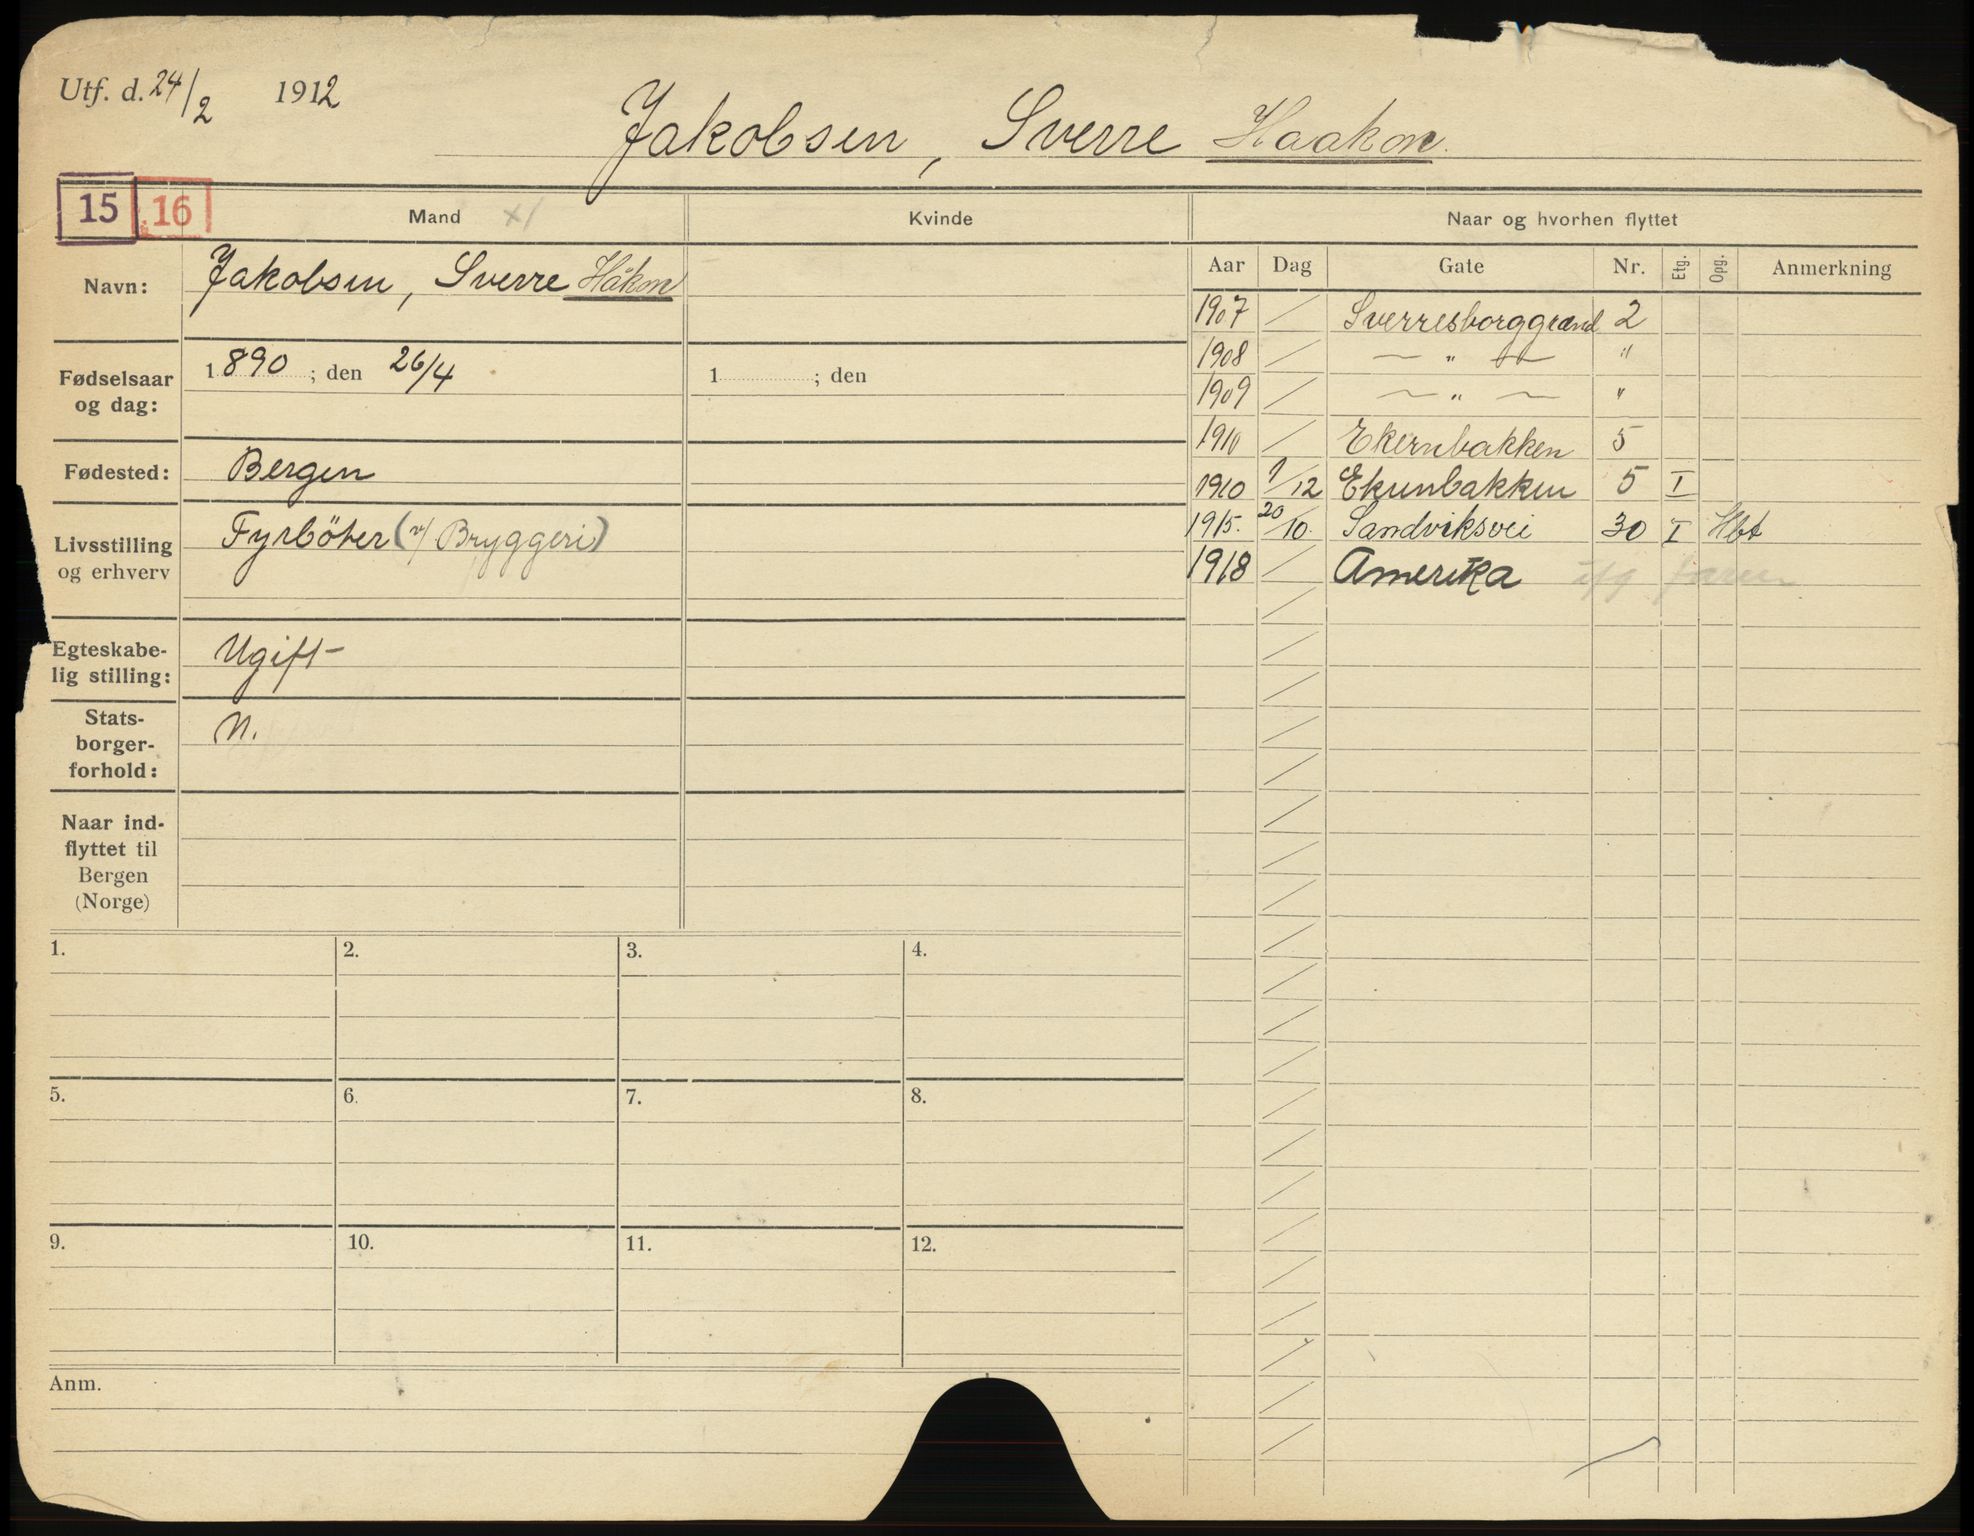 Utf. d. 24/2 1912
Jakobsen, Sverre Haakon.
15 16
Mand
Kvinde
Naar og hvorhen flyttet
Navn: Jakobsen, Sverre Håkon
Fødselsaar og dag: 1890; den 26/4
1 ; den
Fødested: Bergen
Livsstilling og erhverv Fyrböter (v/ Bryggeri)
Egteskabe-
lig stilling: Ugift
Stats-
borger-
forhold: N.
Naar ind-
flyttet til
Bergen
(Norge)
Aar Dag Gate Nr. Etg. Opg. Anmerkning
1907 / Sverresborggrænd 2
1908 / — " — "
1909 / — " — "
1910 / Ekernbakken 5
1910 1/12 Ekernbakken 5 I
1915. 20/10. Sandviksvei 30 I Hbt
1918 / Amerika
1. 2. 3. 4.
5. 6. 7. 8.
9. 10. 11. 12.
Anm.